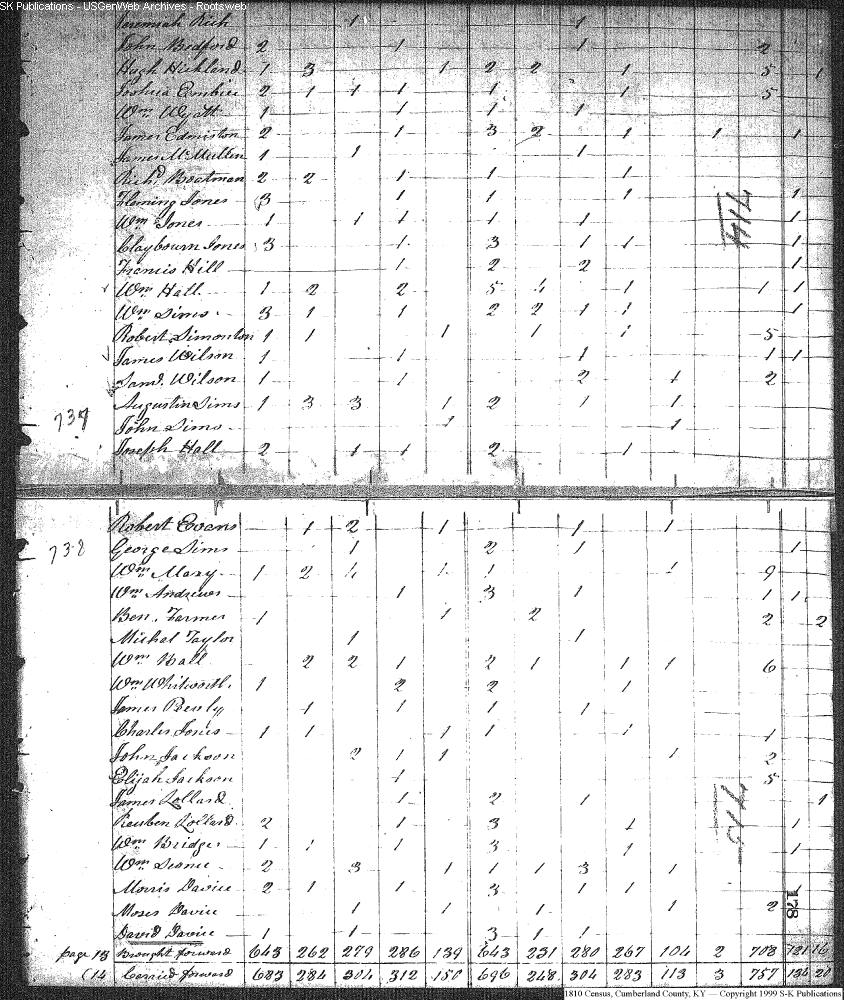 SK Publications - USGenWeb Archives - Rootsweb
Jeremiah Rich 1 1
John Bedford 2 1 1 2
Hugh 1 3 1 2 2 1 5 1
Joshua 2 1 1 1 1 1 5
Wm Wyatt 1 1 1 1
James Edmiston 2 1 3 2 1 1 1
James McMullen 1 1 1
Richd Boatman 2 2 1 1 1
Fleming Jones 3 1 1 1 1
Wm Jones 1 1 1 1 1 1
Claybourn Jones 3 1 3 1 1 1
Francis Hill 1 2 2 1
Wm Hall 1 2 2 5 1 1 1
Wm Sims 3 1 1 2 2 1 1 1
Robert Simonton 1 1 1 1 1 5
James Wilson 1 1 1 1 1
Saml. Wilson 1 1 2 1 2
Augustin Sims 1 3 3 1 2 1 1
737 John Sims 1 1
Joseph Hall 2 1 1 2 1
714
Robert Evans 1 2 1 1 1
738 George Sims 1 2 1 1
Wm Maxy 1 2 1 1 1 9
Wm Andrews 1 3 1 1 1
Ben. Farmer 1 1 2 2 2
Michal Taylor 1 1
Wm Hall 2 2 1 2 1 1 1 6
Wm Whitworth 1 2 2 1
James 1 1 1 1
Charles Jones 1 1 1 1 1 1
John Jackson 2 1 1 1 2
Elijah Jackson 1 5
James Lollard 1 2 1 1
Reuben Lollard 2 1 3 1 1
Wm Bridges 1 1 1 3 1 1
Wm 2 3 1 1 1 3 1
Morris Davice 2 1 1 3 1 1
Moses Davice 1 1 1 1 2
David Davice 1 1 3 1 1
715
178
page 13 Brought forward 643 262 279 286 139 643 231 280 267 104 2 708 121 16
(14 Carried forward 683 284 304 312 150 696 248 304 283 113 3 757 134 20
1810 Census, Cumberland County, KY — Copyright 1999 S-K Publications